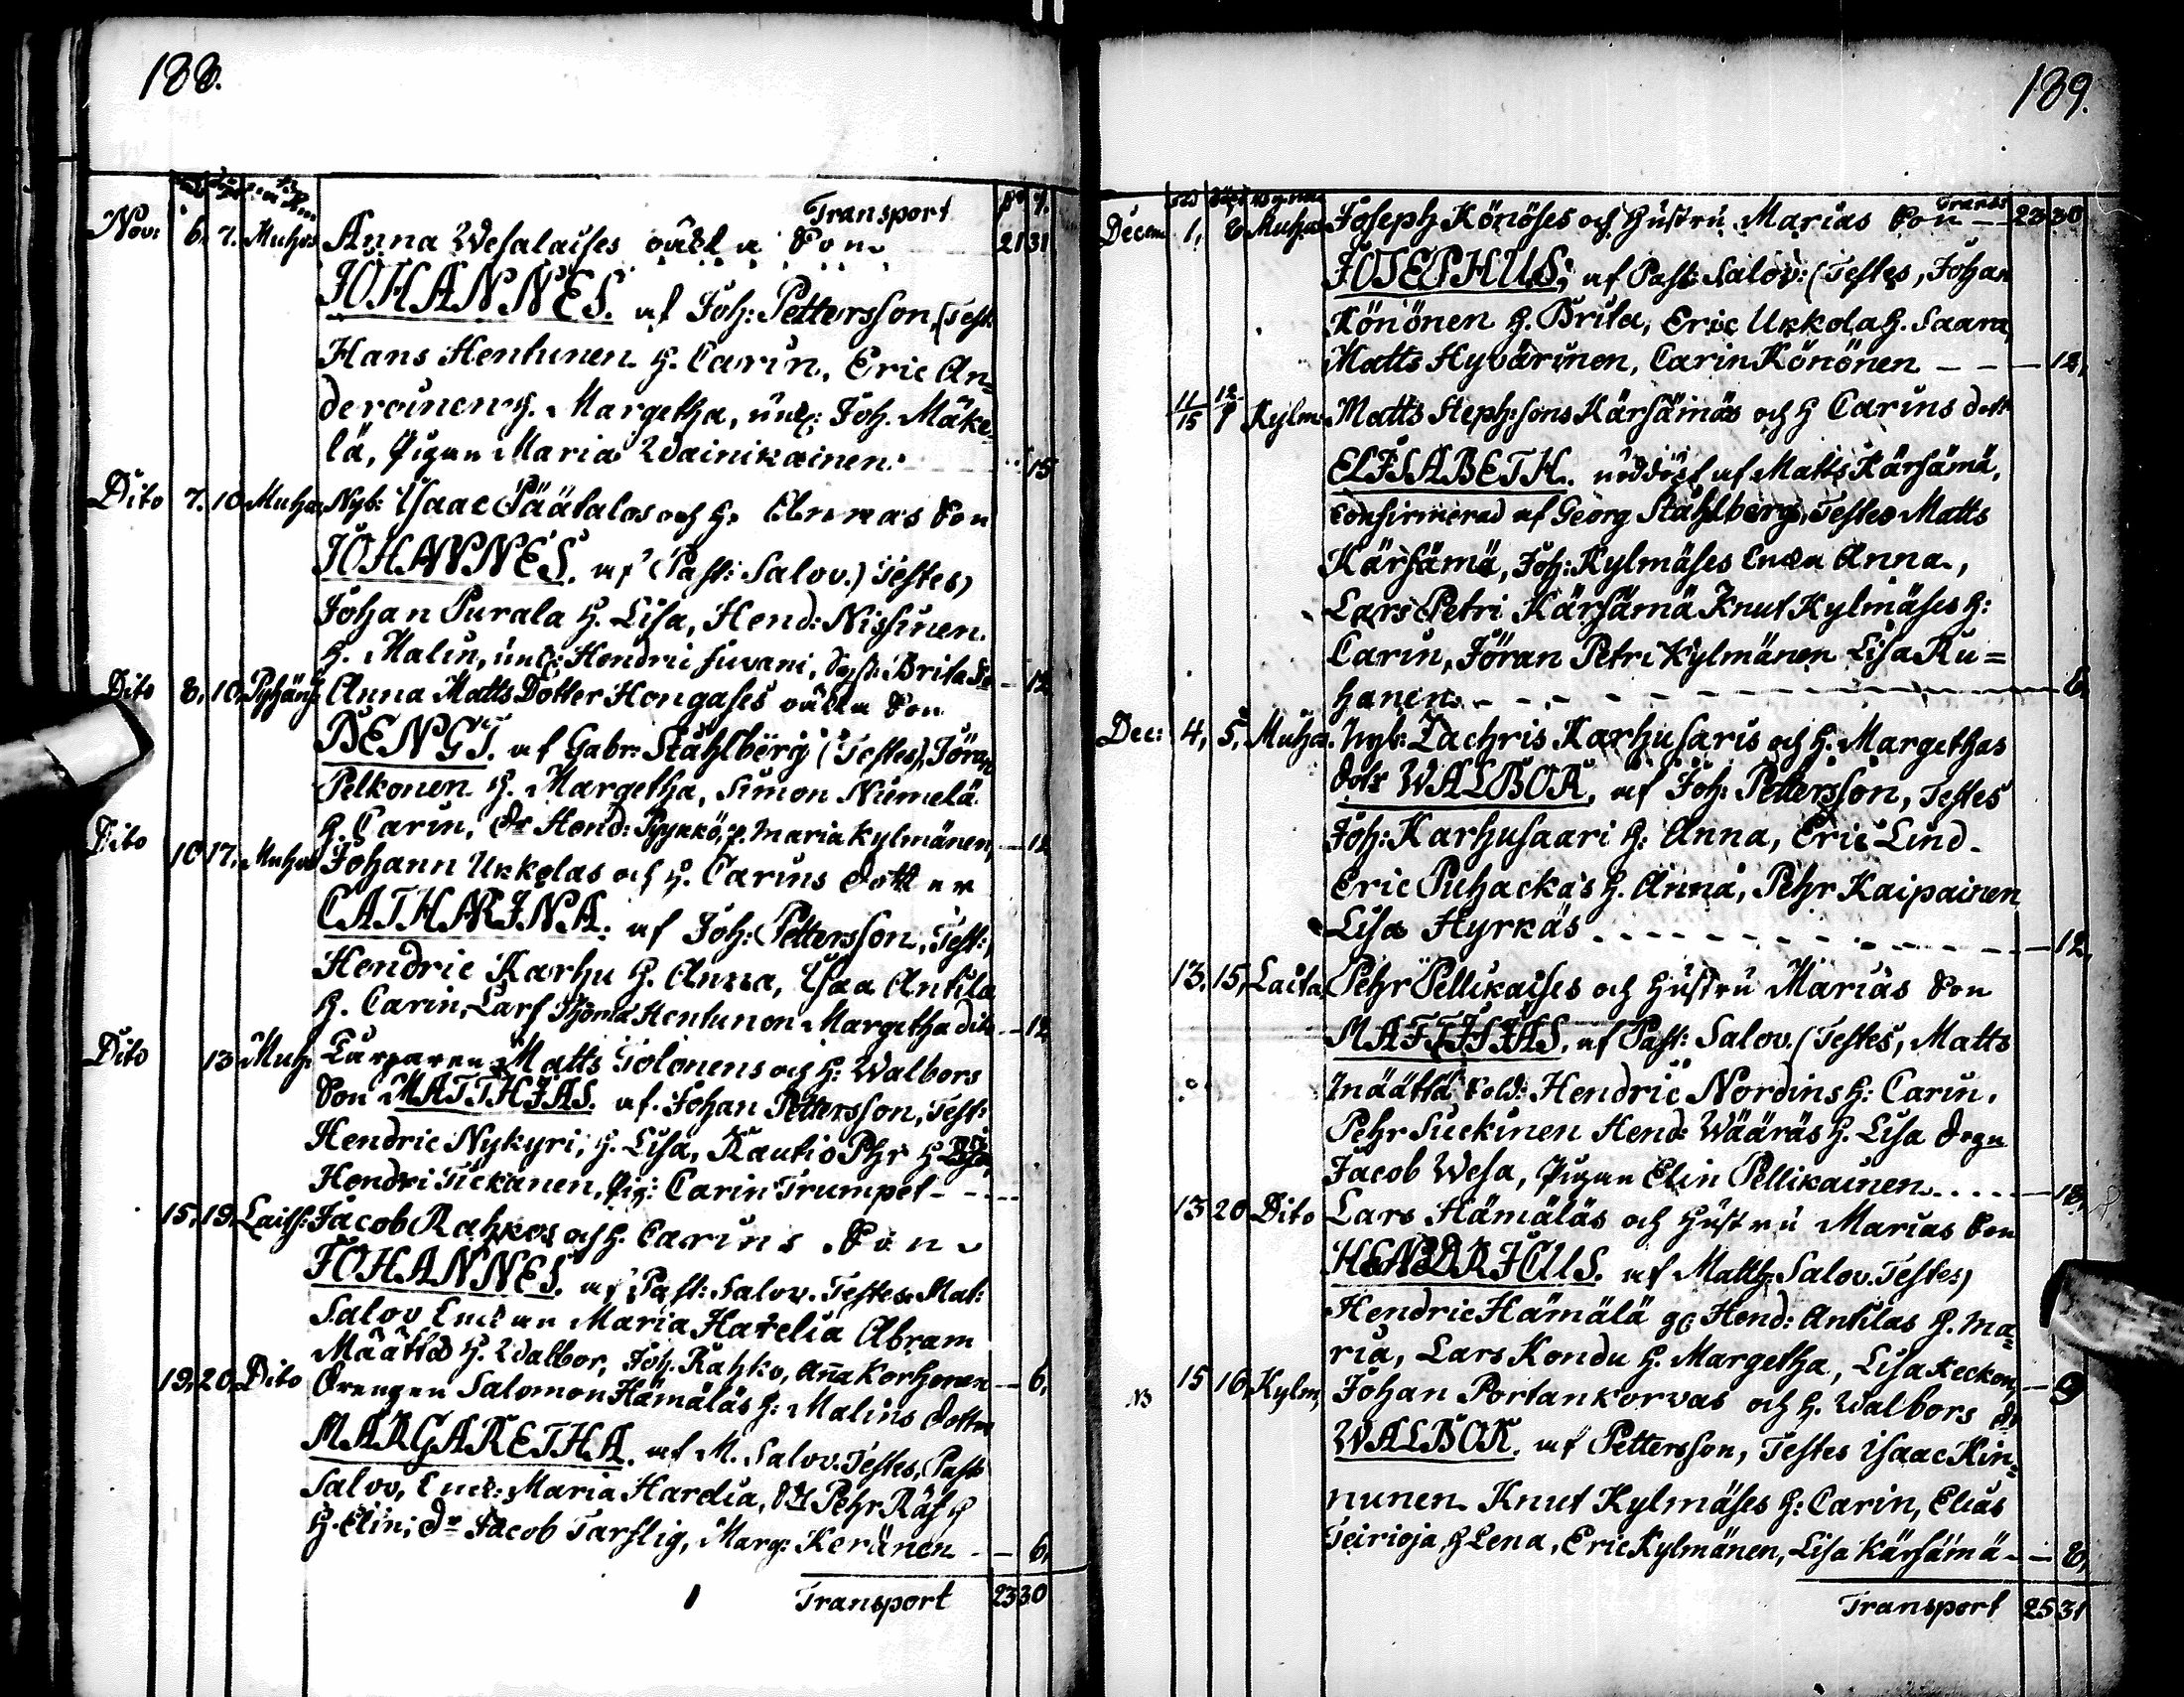 188.
Transport
Nov: 6. 7. Muhos Anna Wesalaises oäkta Son 21 31
JOHANNES. af Joh: Pettersson, (Test:
Hans Hentunen H. Carin, Eric An=
deroinen H. Margetha, Joh. Mäke=
lä, Pigan Maria Wainikainen. 15
Dito 7. 10 Muhos Nyb: Isaac Päätalos och H. Annas Son
JOHANNES. af Past: Salov.) Testes)
Johan Purala H. Lisa, Hend: Nissinen
H. Malin, Hendric Juvani, Brita
Dito 8, 10, Anna Matts Dotter Hongases oäkta Son 12
BENGT. af Gabr: Ståhlberg (Testes), Jöran
Pelkonen H. Margetha, Simon Niemelä
H. Carin, Dr Hend: Pyykkö, p. Maria Kylmänen, 12
Dito 10 17. Muhos Johann Ukkolas och H. Carins Dotter
CATHARINA. af Joh: Pettersson, Test:)
Hendric Karhu H. Anna, Isaa Antila
H. Carin, Lars Hentunen Margetha dito 12
Dito 13 Muh: Matts Tolonens och H: Walbors
Son MATTHIAS. af Johan Pettersson, Test:
Hendric Nykyri, H. Lisa, Kautio Phr H
Hendri Tickanen, Pig: Carin Trumpet
15, 19, Jacob Rahkos och H. Carins Son
JOHANNES. af Past: Salov. Testes Mat:
Salov Enkan Maria Havelia Abram
Määttä H. Walbor, Joh. Rahko, Aña Korhonen 6,
19, 20, Dito Drengen Salomon Hämäläs H: Malins Dotter
MARGARETHA. af M. Salov. Testes, Past:
Salov, Enk: Maria Havelia, Pehr Räf
H. Elin; Dr Jacob Tarflig, Marg: Keränen 6,
Transport 23 30
189.
Transp
Decem 1, 8 Muhos Joseph Könöses och Hustru Marias Son 23 30
JOSEPHUS, af Past: Salov: (Testes, Johan
Könönen H. Brita, Eric Ukkola H. Saara,
Matts Hyvärinen, Carin Könönen 12,
11/15 12/1 Kylm Matts Steph:sons Kärsämäs och H Carins dott
ELISABETH. nöddöpt af Matts Kärsämä,
Confirmerad af Georg Ståhlberg, Testes Matts
Kärsämä, Joh: Kylmäses Enka Anna,
Lars Petri Kärsämä Knut Kylmäses H:
Carin, Jöran Petri Kylmänen Lisa Ru=
hanen. 8,
Dec: 4, 5, Muhos. Nyb: Zachris Karhusaris och H. Margethas
dotr WALBOR, af Joh: Pettersson, Testes
Joh: Karhusaari H: Anna, Eric Lind
Eric Puhackas H. Anna, Pehr Kaipainen
Lisa Hyrkäs 12,
13. 15, Laita Pehr Pellikaises och Hustru Marias Son
MATTHIAS, af Past: Salov. (Testes, Matts
Määttä Sold: Hendric Nordins H: Carin,
Pehr Suckinen Hend: Wääräs H. Lisa Dr
Jacob Wesa, Pigan Elin Pellikainen
13 20 Dito Lars Hämäläs och Hustru Marias Son
HENDRICUS. af Matth: Salov. Testes)
Hendric Hämälä Hend: Antilas H. Ma=
ria, Lars Kondu H. Margetha, Lisa Keckon, 9
NB 15 16, Kylm, Johan Portankorvas och H. Walbors dr
WALBOR. af Pettersson, Testes Isaac Kin=
nunen Knut Kylmäses H: Carin, Elias
Teirioja H Lena, Eric Kylmänen, Lisa Kärsämä 8,
Transport 25 31